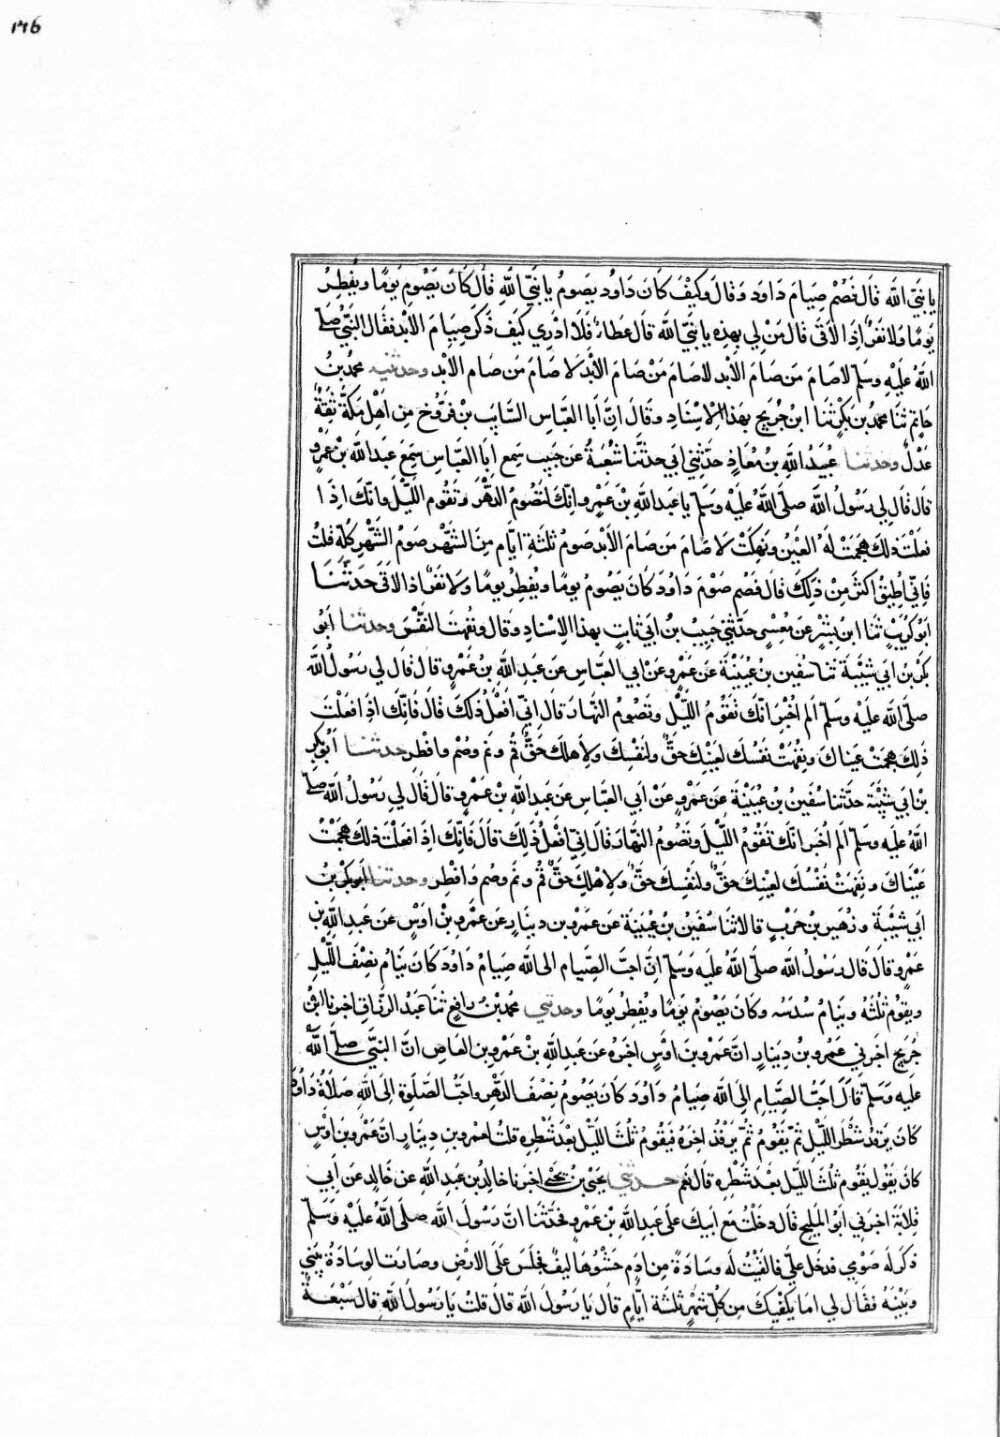 ١٣٥
يا نبي الله قال فصم صيام داود وقال وكيف كان داود يصوم يا نبي الله قال كان يصوم يوما ويفطر
يوما ولا نفر اذا لاقى قال من لي بهذه يا نبي الله قال عطاء فلا ادري كيف ذكر صيام الابد فقال النبي صلى
الله عليه وسلم لا صام من صام الابد لا صام من صام الابد لا صام من صام الابد وحدثنيه محمد بن
حاتم ثنا محمد بن بكر ثنا ابن جريج بهذا الاسناد وقال ان ابا العباس السايب بن فروخ من اهل مكة ثقة
عدل وحدثنا عبيد الله بن معاذ حدثني ابي حدثنا شعبة عن حبيب سمع ابا العباس سمع عبد الله بن عمرو
قال قال لي رسول الله صلى الله عليه وسلم يا عبد الله بن عمرو انك لتصوم الدهر وتقوم الليل وانك اذا
فعلت ذلك هجمت له العين ونهكت لا صام من صام الابد صوم ثلثة ايام من الشهر صوم الشهر كله قلت
فاني اطيق اكثر من ذلك قال فصم صوم داود كان يصوم يوما ويفطر يوما ولا نفر اذا لاقى حدثنا
ابو كريب ثنا ابن بشر عن مسعر حدثني حبيب بن ابي ثابت بهذا الاسناد وقال ونفهت النفس وحدثنا ابو
بكر بن ابي شيبة ثنا سفين بن عيينة عن عمرو عن ابي العباس عن عبد الله بن عمرو قال قال لي رسول الله
صلى الله عليه وسلم الم اخبر انك تقوم الليل وتصوم النهار قال اني افعل ذلك قال فانك اذا فعلت
ذلك هجمت عيناك ونفهت نفسك لعينك حق ولنفسك ولاهلك حق قم ونم وصم وافطر حدثنا ابو بكر
بن ابي شيبة حدثنا سفين بن عيينة عن عمرو عن ابي العباس عن عبد الله بن عمرو قال قال لي رسول الله صلى
الله عليه وسلم الم اخبر انك تقوم الليل وتصوم النهار قال اني افعل ذلك قال فانك اذا فعلت ذلك هجمت
عيناك ونفهت نفسك لعينك حق ولنفسك حق ولاهلك حق قم ونم وصم وافطر وحدثنا ابو بكر بن
ابي شيبة وزهير بن حرب قالا ثنا سفين بن عيينة عن عمرو بن دينار عن عمرو بن اوس عن عبد الله بن
عمرو قال قال رسول الله صلى الله عليه وسلم ان احب الصيام الى الله صيام داود كان ينام نصف الليل
ويقوم ثلثه وينام سدسه وكان يصوم يوما ويفطر يوما وحدثني محمد بن رافع ثنا عبد الرزاق اخبرنا ابن
جريج اخبرني عمرو بن دينار ان عمرو بن اوس اخبره عن عبد الله بن عمرو بن العاص ان النبي صلى الله
عليه وسلم قال احب الصيام الى الله صيام داود كان يصوم نصف الدهر واحب الصلوة الى الله صلاة داود
كان يرقد شطر الليل ثم يقوم ثم يرقد اخره فيقوم ثلث الليل بعد شطره قلت لعمرو بن دينار ان عمرو بن اوس
كان يقول يقوم ثلث الليل بعد شطره قال نعم حدثني يحيى بن يحيى اخبرنا خالد بن عبد الله عن خالد عن ابي
قلابة اخبرني ابو المليح قال دخلت مع ابيك على عبد الله بن عمرو فحدثنا ان رسول الله صلى الله عليه وسلم
ذكر له صومي فدخل علي فالقيت له وسادة من ادم حشوها ليف فجلس على الارض وصارت الوسادة بيني
وبينه فقال لي اما يكفيك من كل شهر ثلثة ايام قال يا رسول الله قال قلت يا رسول الله قال سبعة